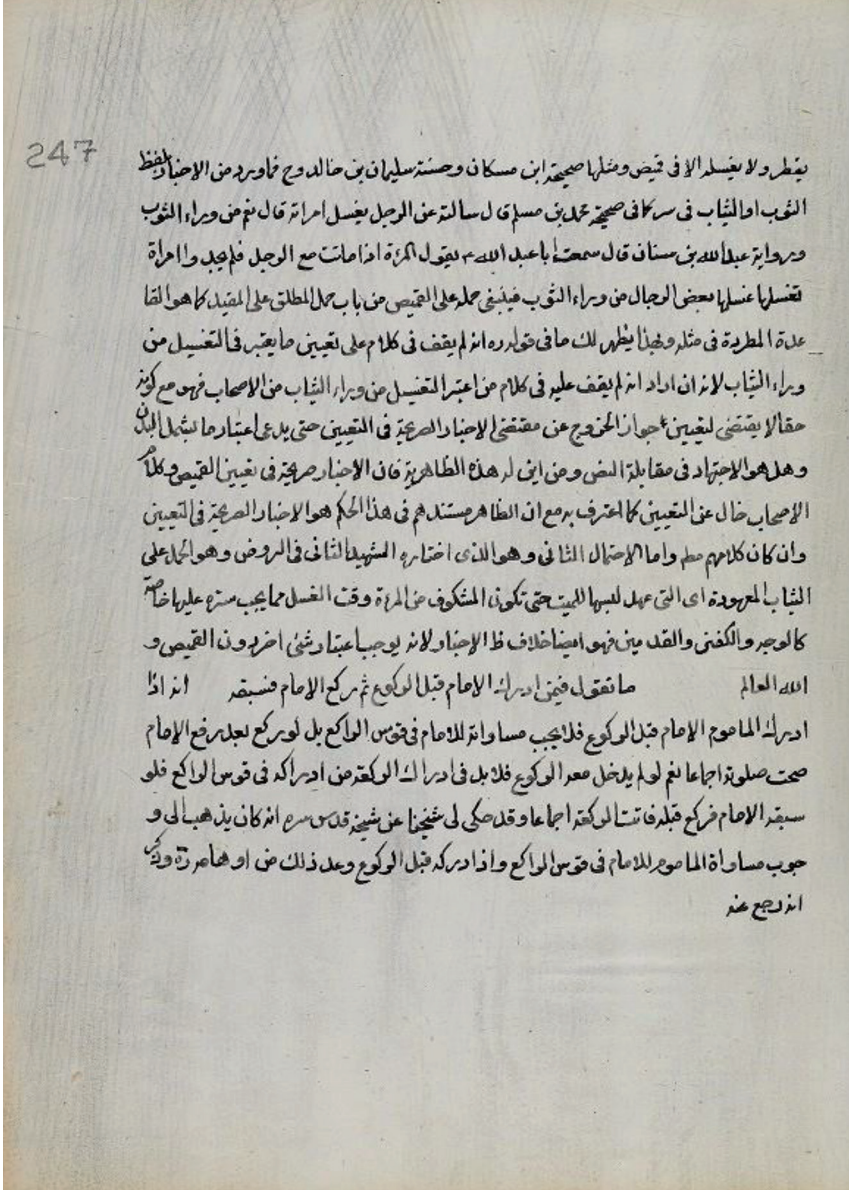 247
يقطر ولا يغسله الا في قميص ومثلها صحيحة ابن مسكان وحسنة سليمان بن خالد وح فما ورد من الاخبار بلفظ
الثوب او الثياب في سر كما في صحيحة محمد بن مسلم قال سالته عن الرجل يغسل امراته قال نعم من وراء الثوب
ورواية عبد الله بن سنان قال سمعت ابا عبد الله ع يقول المرءة اذا ماتت مع الرجل فلم يجد وا امراة
تغسلها غسلها بعض الرجال من وراء الثوب فينبغي حمله على القميص من باب حمل المطلق على المقيد كما هو القا
عدة المطردة في مثله وبهذا يظهر لك ما في قوله ره انه لم يقف في كلام على تعيين ما يعتبر في التغسيل من
وراء الثياب لانه ان اراد انه لم يقف عليه في كلام من اعتبر التغسيل من وراء الثياب من الاصحاب فهو مع كونه
حقا لا يقتضى لتعيين جواز الخروج عن مقتضى الاخبار الصريحة في التعيين حتى يدعى اعتبار ما يشمل البدن
وهل هو الا جتهاد في مقابلة النص ومن اين له هذه الظاهرية فان الاخبار صريحة في تعيين القميص وكلام
الاصحاب خال عن التعيين كما اعترف به مع ان الظاهر مستندهم في هذا الحكم هو الاخبار الصريحة في التعيين
وان كان كلامهم مطم واما الاحتمال الثاني وهو الذي اختاره الشهيد الثاني في الروض وهو الحمل على
الثياب المعهودة اى التي عهد لبسها للميت حتى تكون المشكوف من المرءة وقت الغسل مما يجب ستره عليها خاصة
كالوجه والكفين والقدمين فهو ايضا خلاف ظ الاخبار لانه يوجب اعتبار شئ اخر دون القميص و
الله العالم ما تقول فيمن ادرك الامام قبل الركوع ثم ركع الامام فسبقه انه اذا
ادرك الماموم الامام قبل الركوع فلا يجب مساواته للامام في قوس الراكع بل لو ركع بعد رفع الامام
صحت صلوته اجماعا نعم لو لم يدخل معه الركوع فلا بد في ادراك الركعة من ادراكه في قوس الراكع فلو
سبقه الامام فركع قبله فاتت الركعة اجماعا وقد حكى لى شيخنا عن شيخه قدس سره انه كان يذهب الى و
جوب مساواة الماموم للامام في قوس الراكع واذا دركه قبل الركوع وعد ذلك من اوهامه ره وذكر
انه رجع عنه